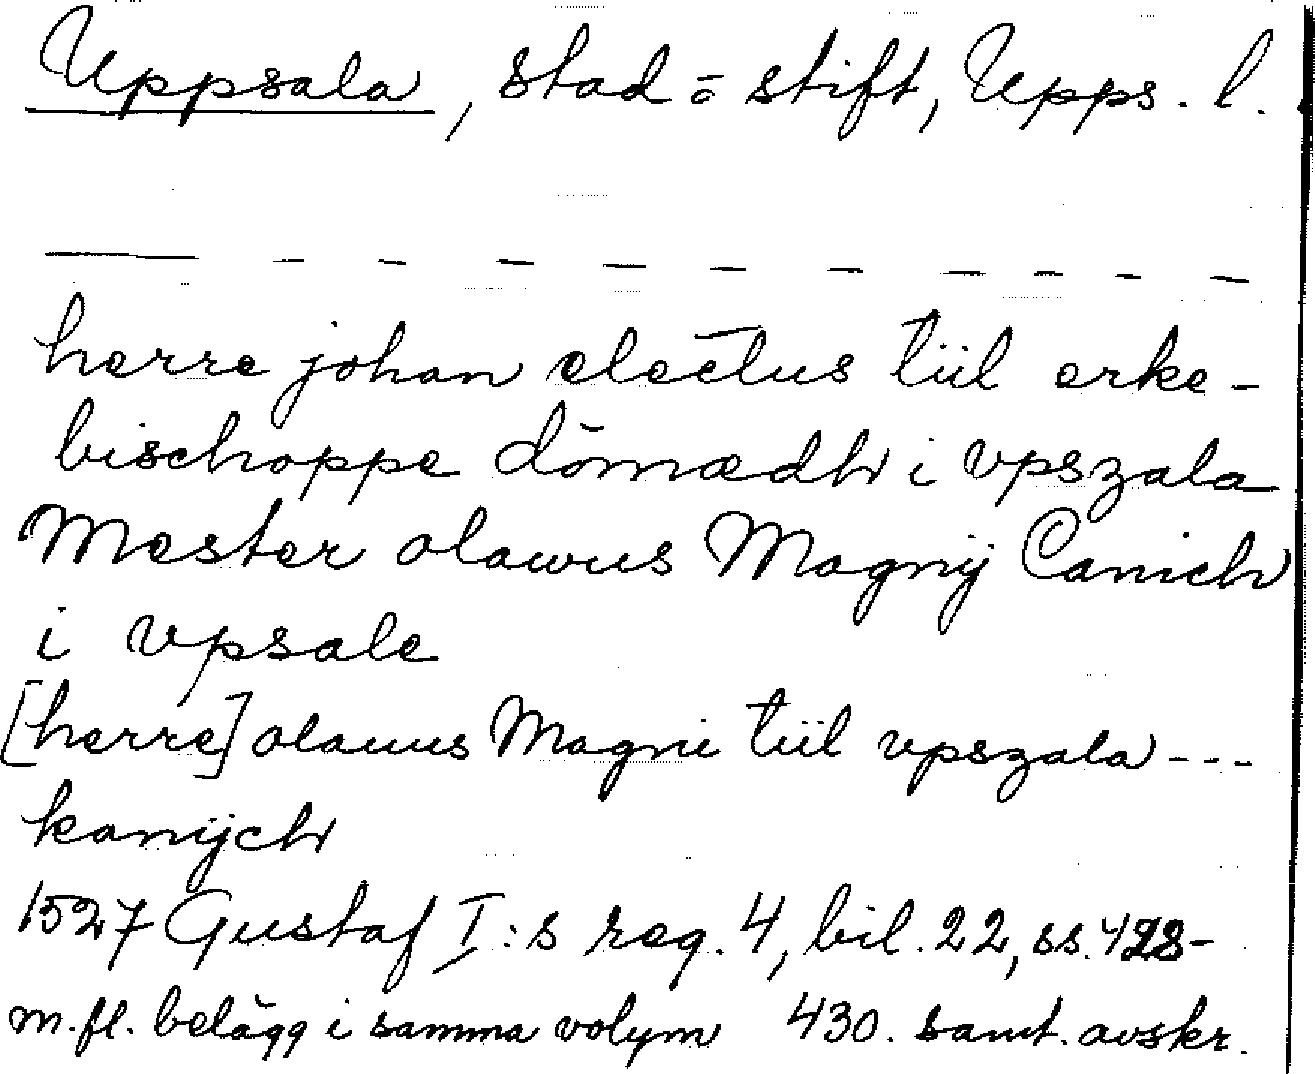 Uppsala, stad o stift, Upps. l.
herre johan electus tiil erke-
bischoppe dömædh i vpszala
Mester olawus Magnÿ Canich
i vpsale
[herre] olauus Magni tiil vpszala ---
kanÿch
1527 Gustaf I:s reg. 4, bil. 22, ss. 428-
m.fl. belägg i samma volym 430. samt. avskr.